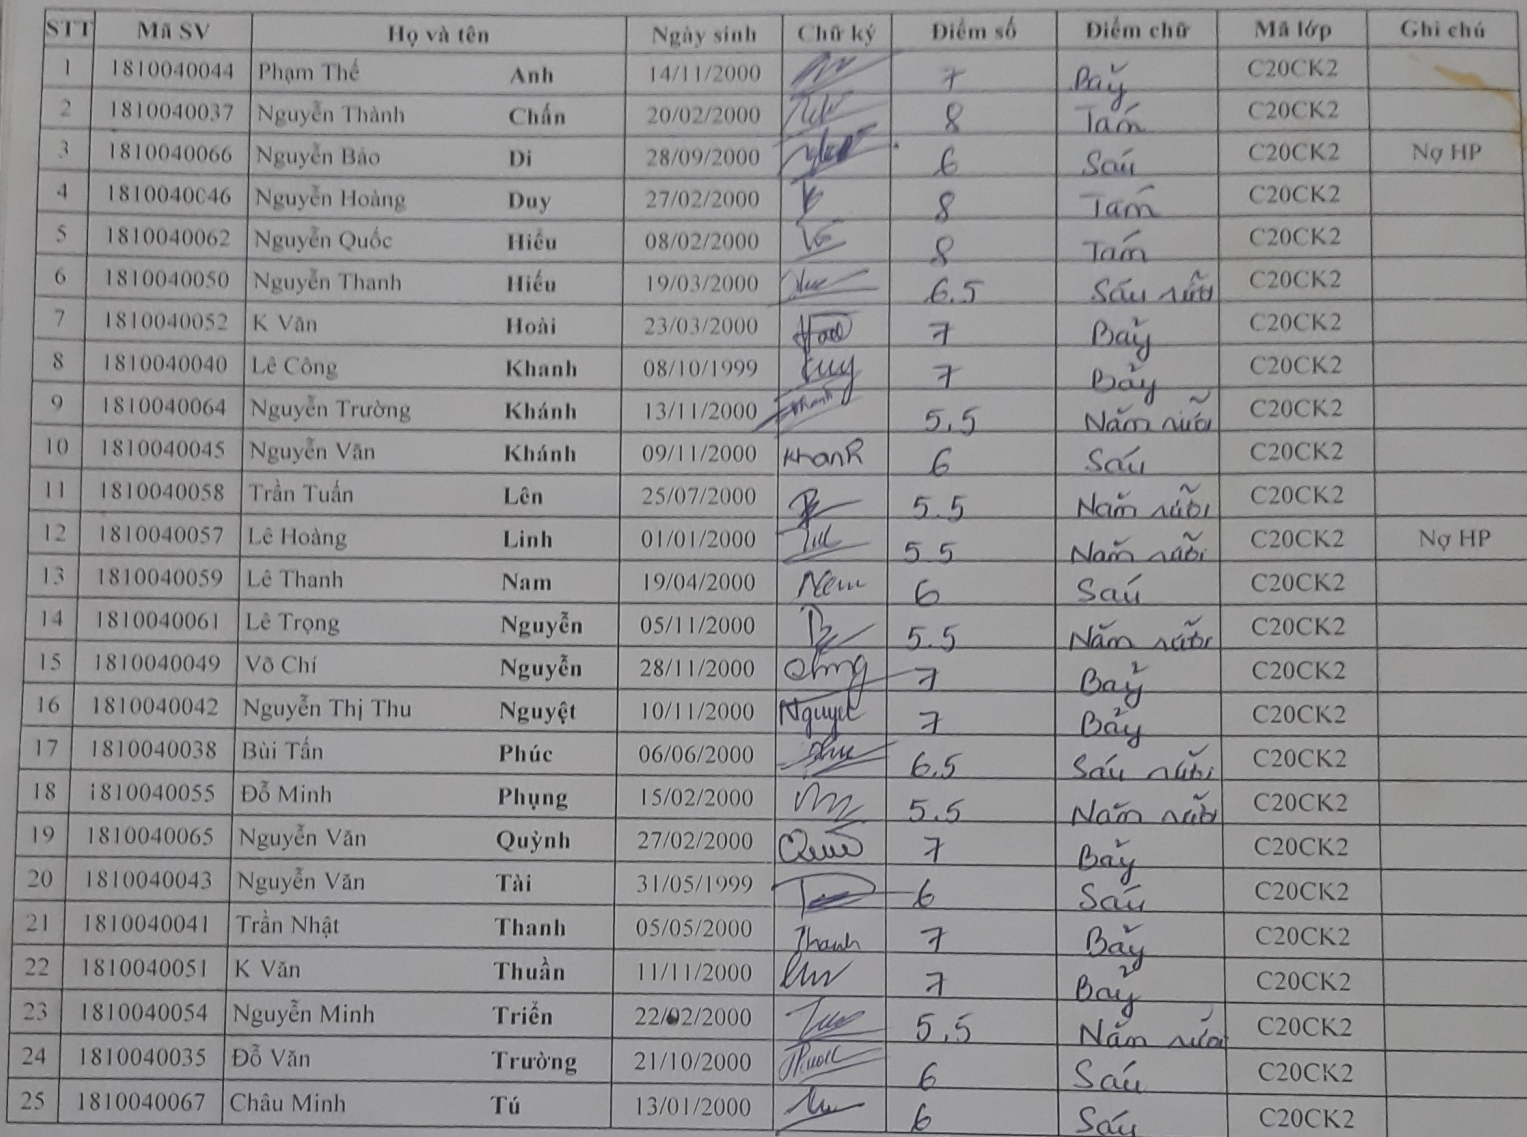 STT Mã SV Họ và tên Ngày sinh Chữ ký Điểm số Điểm chữ Mã lớp Ghi chú
1 1810040044 Phạm Thế Anh 14/11/2000 7 Bảy C20CK2
2 1810040037 Nguyễn Thành Chấn 20/02/2000 8 Tám C20CK2
3 1810040066 Nguyễn Bảo Di 28/09/2000 6 Sáu C20CK2 Nợ HP
4 1810040046 Nguyễn Hoàng Duy 27/02/2000 8 Tám C20CK2
5 1810040062 Nguyễn Quốc Hiếu 08/02/2000 8 Tám C20CK2
6 1810040050 Nguyễn Thanh Hiếu 19/03/2000 6.5 Sáu rưỡi C20CK2
7 1810040052 K Văn Hoài 23/03/2000 7 Bảy C20CK2
8 1810040040 Lê Công Khanh 08/10/1999 7 Bảy C20CK2
9 1810040064 Nguyễn Trường Khánh 13/11/2000 Khanh 5,5 Năm rưỡi C20CK2
10 1810040045 Nguyễn Văn Khánh 09/11/2000 Khanh 6 Sáu C20CK2
11 1810040058 Trần Tuấn Lên 25/07/2000 5.5 Năm rưỡi C20CK2
12 1810040057 Lê Hoàng Linh 01/01/2000 5.5 Năm rưỡi C20CK2 Nợ HP
13 1810040059 Lê Thanh Nam 19/04/2000 Nam 6 Sáu C20CK2
14 1810040061 Lê Trọng Nguyễn 05/11/2000 5.5 Năm rưỡi C20CK2
15 1810040049 Võ Chí Nguyễn 28/11/2000 7 Bảy C20CK2
16 1810040042 Nguyễn Thị Thu Nguyệt 10/11/2000 Nguyet 7 Bảy C20CK2
17 1810040038 Bùi Tấn Phúc 06/06/2000 6.5 Sáu rưỡi C20CK2
18 1810040055 Đỗ Minh Phụng 15/02/2000 5.5 Năm rưỡi C20CK2
19 1810040065 Nguyễn Văn Quỳnh 27/02/2000 7 Bảy C20CK2
20 1810040043 Nguyễn Văn Tài 31/05/1999 6 Sáu C20CK2
21 1810040041 Trần Nhật Thanh 05/05/2000 Thanh 7 Bảy C20CK2
22 1810040051 K Văn Thuần 11/11/2000 7 Bảy C20CK2
23 1810040054 Nguyễn Minh Triển 22/02/2000 5.5 Năm rưỡi C20CK2
24 1810040035 Đỗ Văn Trường 21/10/2000 6 Sáu C20CK2
25 1810040067 Châu Minh Tú 13/01/2000 6 Sáu C20CK2